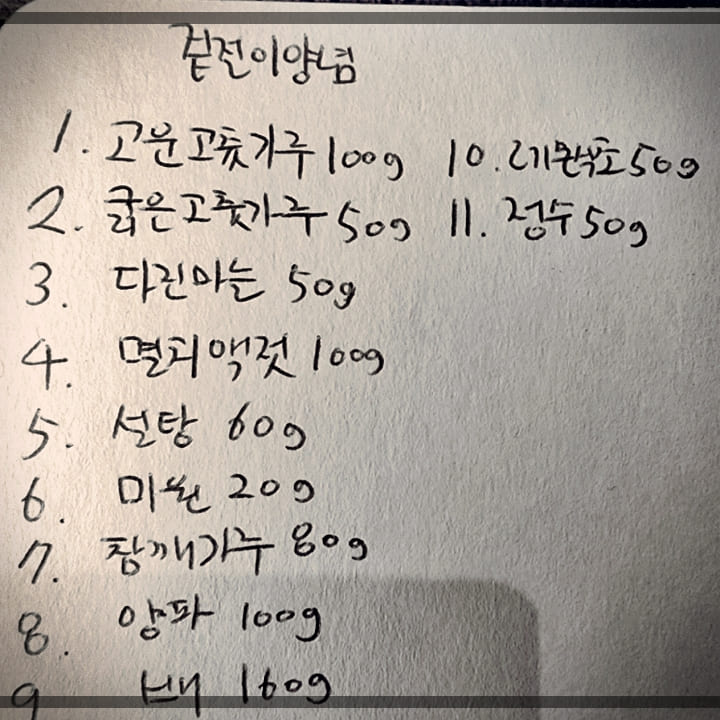 겉절이양념
1. 고운고춧가루 100g
2. 굵은고춧가루 50g
3. 다진마늘 50g
4. 멸치액젓 100g
5. 설탕 60g
6. 미원 20g
7. 참깨가루 80g
8. 양파 100g
9 배 160g
10. 50g
11. 정수 50g